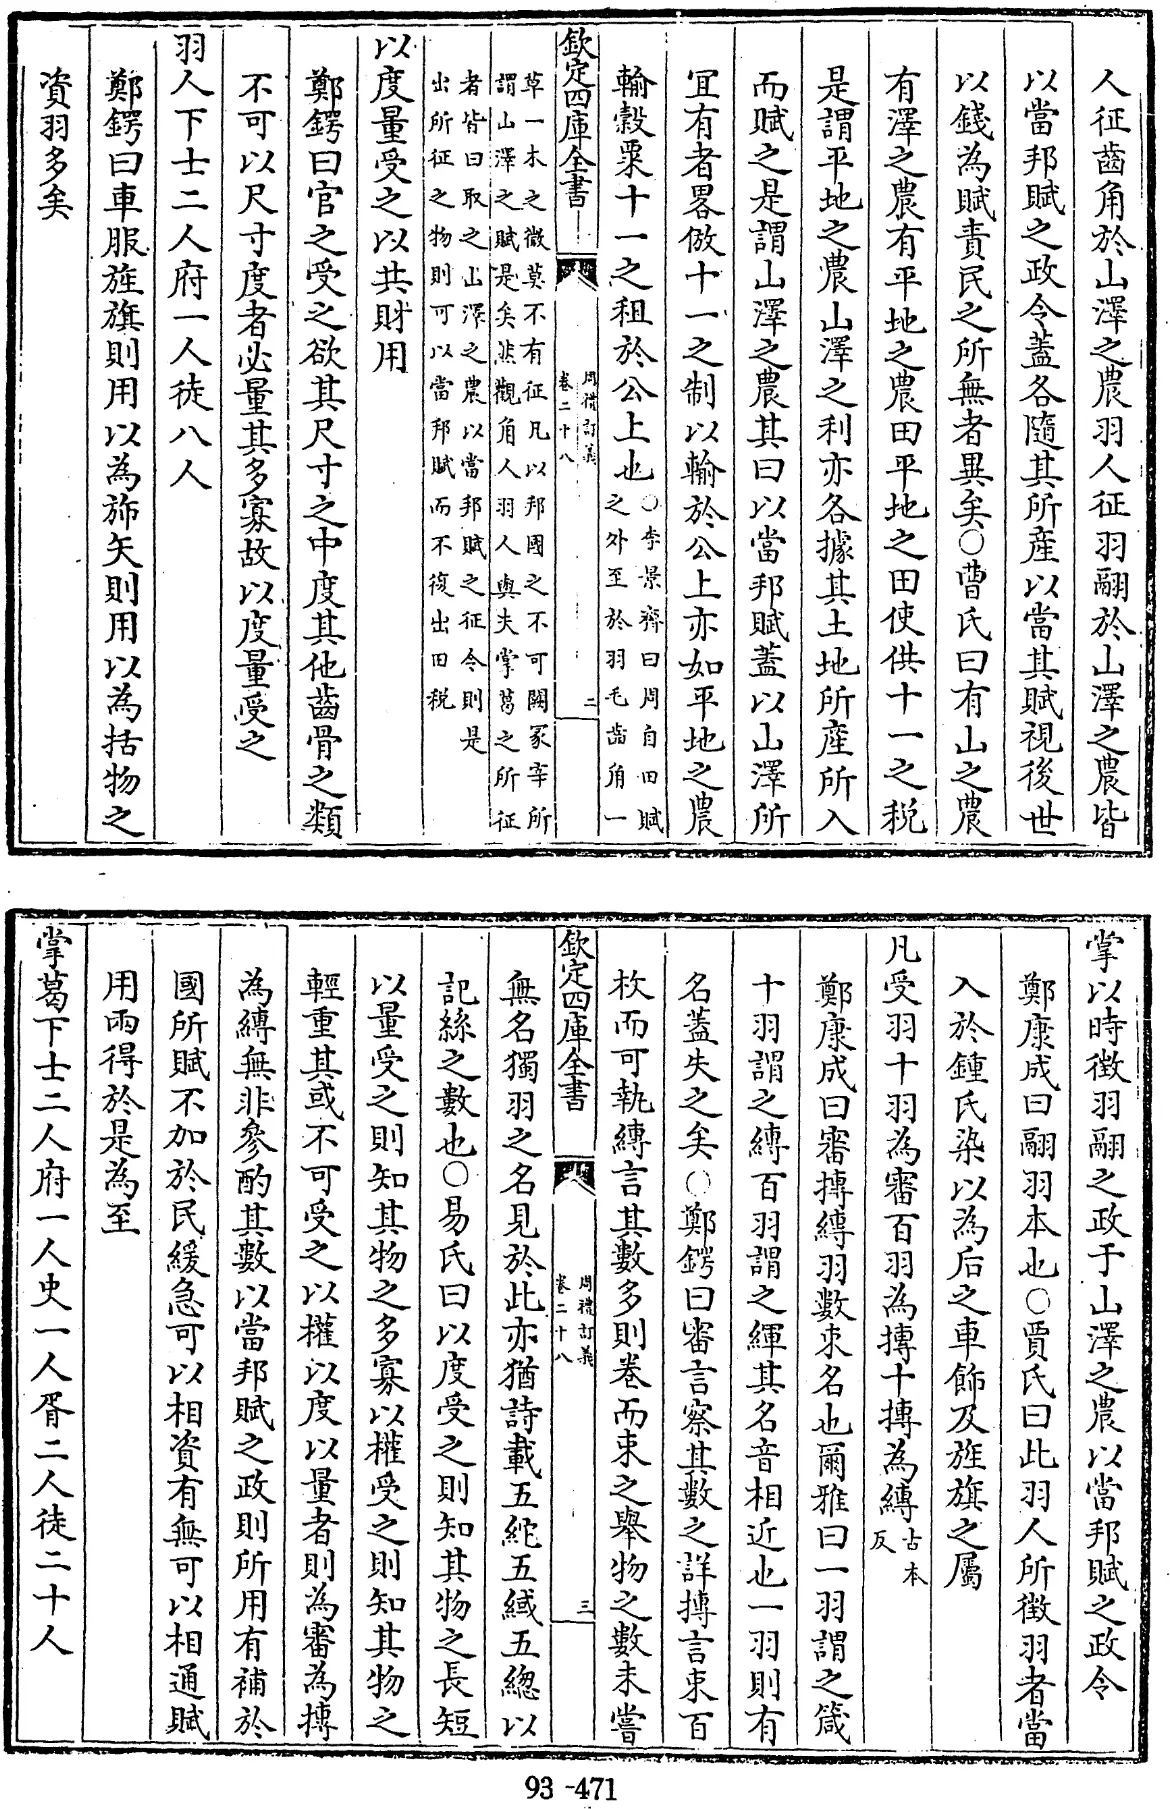 人征齒角於山澤之農羽人征羽翮於山澤之農皆
以當邦賦之政令蓋各隨其所産以當其賦視後世
以錢為賦責民之所無者異矣○曹氏曰有山之農
有澤之農有平地之農田平地之田使供十一之税
是謂平地之農山澤之利亦各據其土地所産所入
而賦之是謂山澤之農其曰以當邦賦蓋以山澤所
宜有者畧倣十一之制以輸於公上亦如平地之農
輸穀粟十一之租於公上也○李景齊曰周自田賦
之外至於羽毛齒角一
欽定四庫全書
周禮訂義
卷二十八
二
草一木之微莫不有征凡以邦國之不可闕冢宰所
謂山澤之賦是矣然觀角人羽人與夫掌葛之所征
者皆曰取之山澤之農以當邦賦之征令則是
出所征之物則可以當邦賦而不復出田税
以度量受之以共財用
鄭鍔曰官之受之欲其尺寸之中度其他齒骨之類
不可以尺寸度者必量其多寡故以度量受之
羽人下士二人府一人徒八人
鄭鍔曰車服旌旗則用以為斾矢則用以為括物之
資羽多矣
掌以時徴羽翮之政于山澤之農以當邦賦之政令
鄭康成曰翮羽本也○賈氏曰此羽人所徴羽者當
入於鍾氏染以為后之車飾及旌旗之屬
凡受羽十羽為審百羽為摶十摶為縳古本
反
鄭康成曰審摶縳羽數束名也爾雅曰一羽謂之箴
十羽謂之縳百羽謂之緷其名音相近也一羽則有
名蓋失之矣○鄭鍔曰審言察其數之詳摶言束百
枚而可執縳言其數多則卷而束之舉物之數未嘗
欽定四庫全書
周禮訂義
卷二十八
三
無名獨羽之名見於此亦猶詩載五紽五緎五總以
記絲之數也○易氏曰以度受之則知其物之長短
以量受之則知其物之多寡以權受之則知其物之
輕重其或不可受之以權以度以量者則為審為摶
為縳無非參酌其數以當邦賦之政則所用有補於
國所賦不加於民緩急可以相資有無可以相通賦
用兩得於是為至
掌葛下士二人府一人史一人胥二人徒二十人
93-471